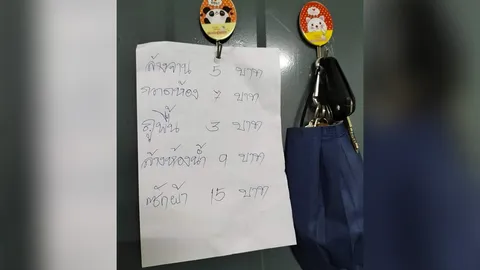 ล้างจาน 5 บาท
กวาดห้อง 7 บาท
ถูพื้น 3 บาท
ล้างห้องน้ำ 9 บาท
ซักผ้า 15 บาท